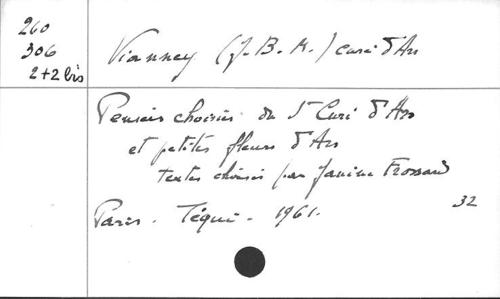 260
306
2+2 bis
Vianney (J.B.M.) curé d'Ars
Pensées choisies du St Curé d'Ars
et petites fleurs d'Ars
textes choisis par Janine Frossard
Paris. Téqui. 1961.
32